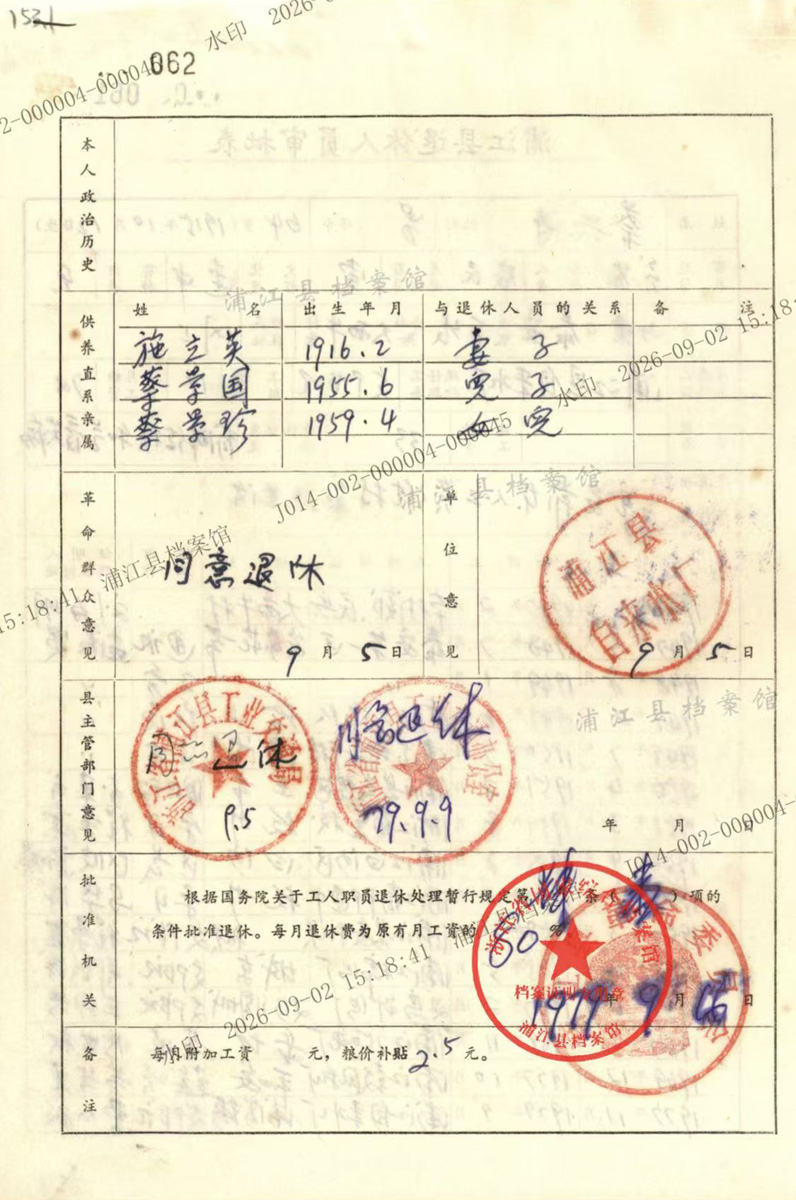 1531
062
本人政治历史
供养直系亲属
姓名 出生年月 与退休人员的关系 备注
施立英 1916.2 妻子
蔡学国 1955.6 儿子
蔡学珍 1959.4 女儿
革命群众意见
同意退休
9月5日
单位意见
浦江县
自来水厂
9月5日
县主管部门意见
浙江省浦江县工业交通局
同意退休
9.5
同意退休
79.9.9
年 月 日
批准机关
根据国务院关于工人职员退休处理暂行规定第 条( )项的
条件批准退休。每月退休费为原有月工资的80%
1979年9月 日
档案证明专用章
浦江县档案馆
备注
每月附加工资 元,粮价补贴2.5元。
浦江县档案馆
J014-002-000004-000045
水印 2026-09-02 15:18:41